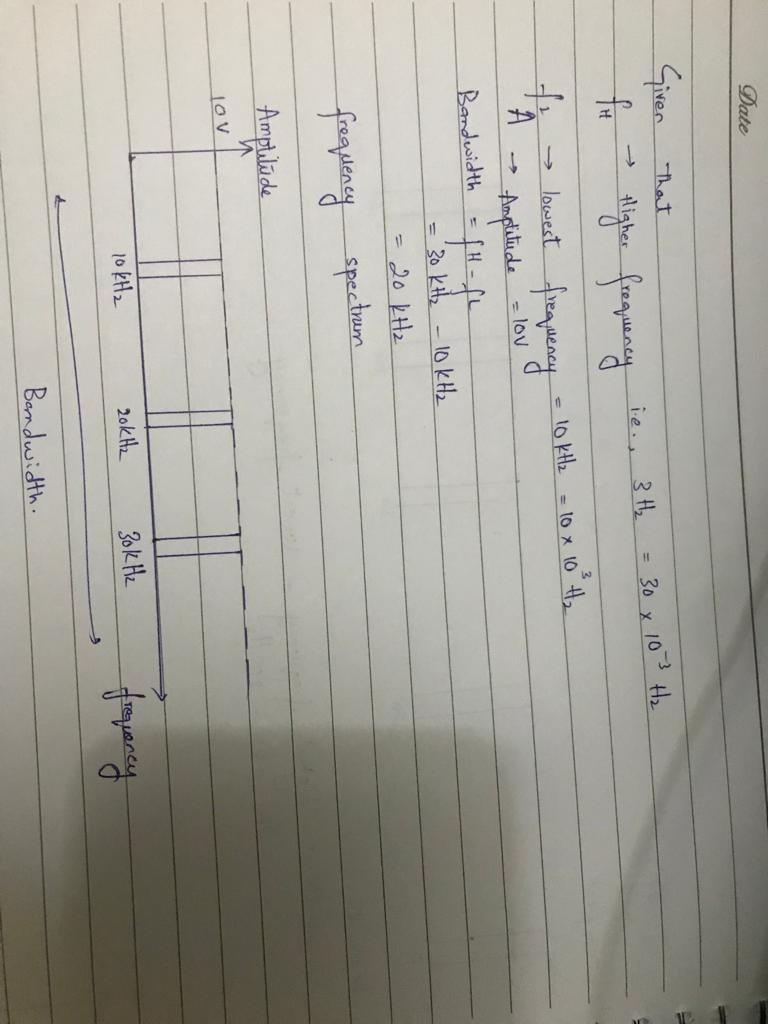 Date
Given that
fH → Higher frequency i.e., 3Hz = 30 x 10⁻³ Hz
fL → lowest frequency = 10kHz = 10 x 10³ Hz
A → Amplitude = 10V
Bandwidth = fH - fL
= 30 kHz - 10 kHz
= 20 kHz
frequency spectrum
Amplitude
10V
10kHz 20kHz 30kHz frequency
Bandwidth.